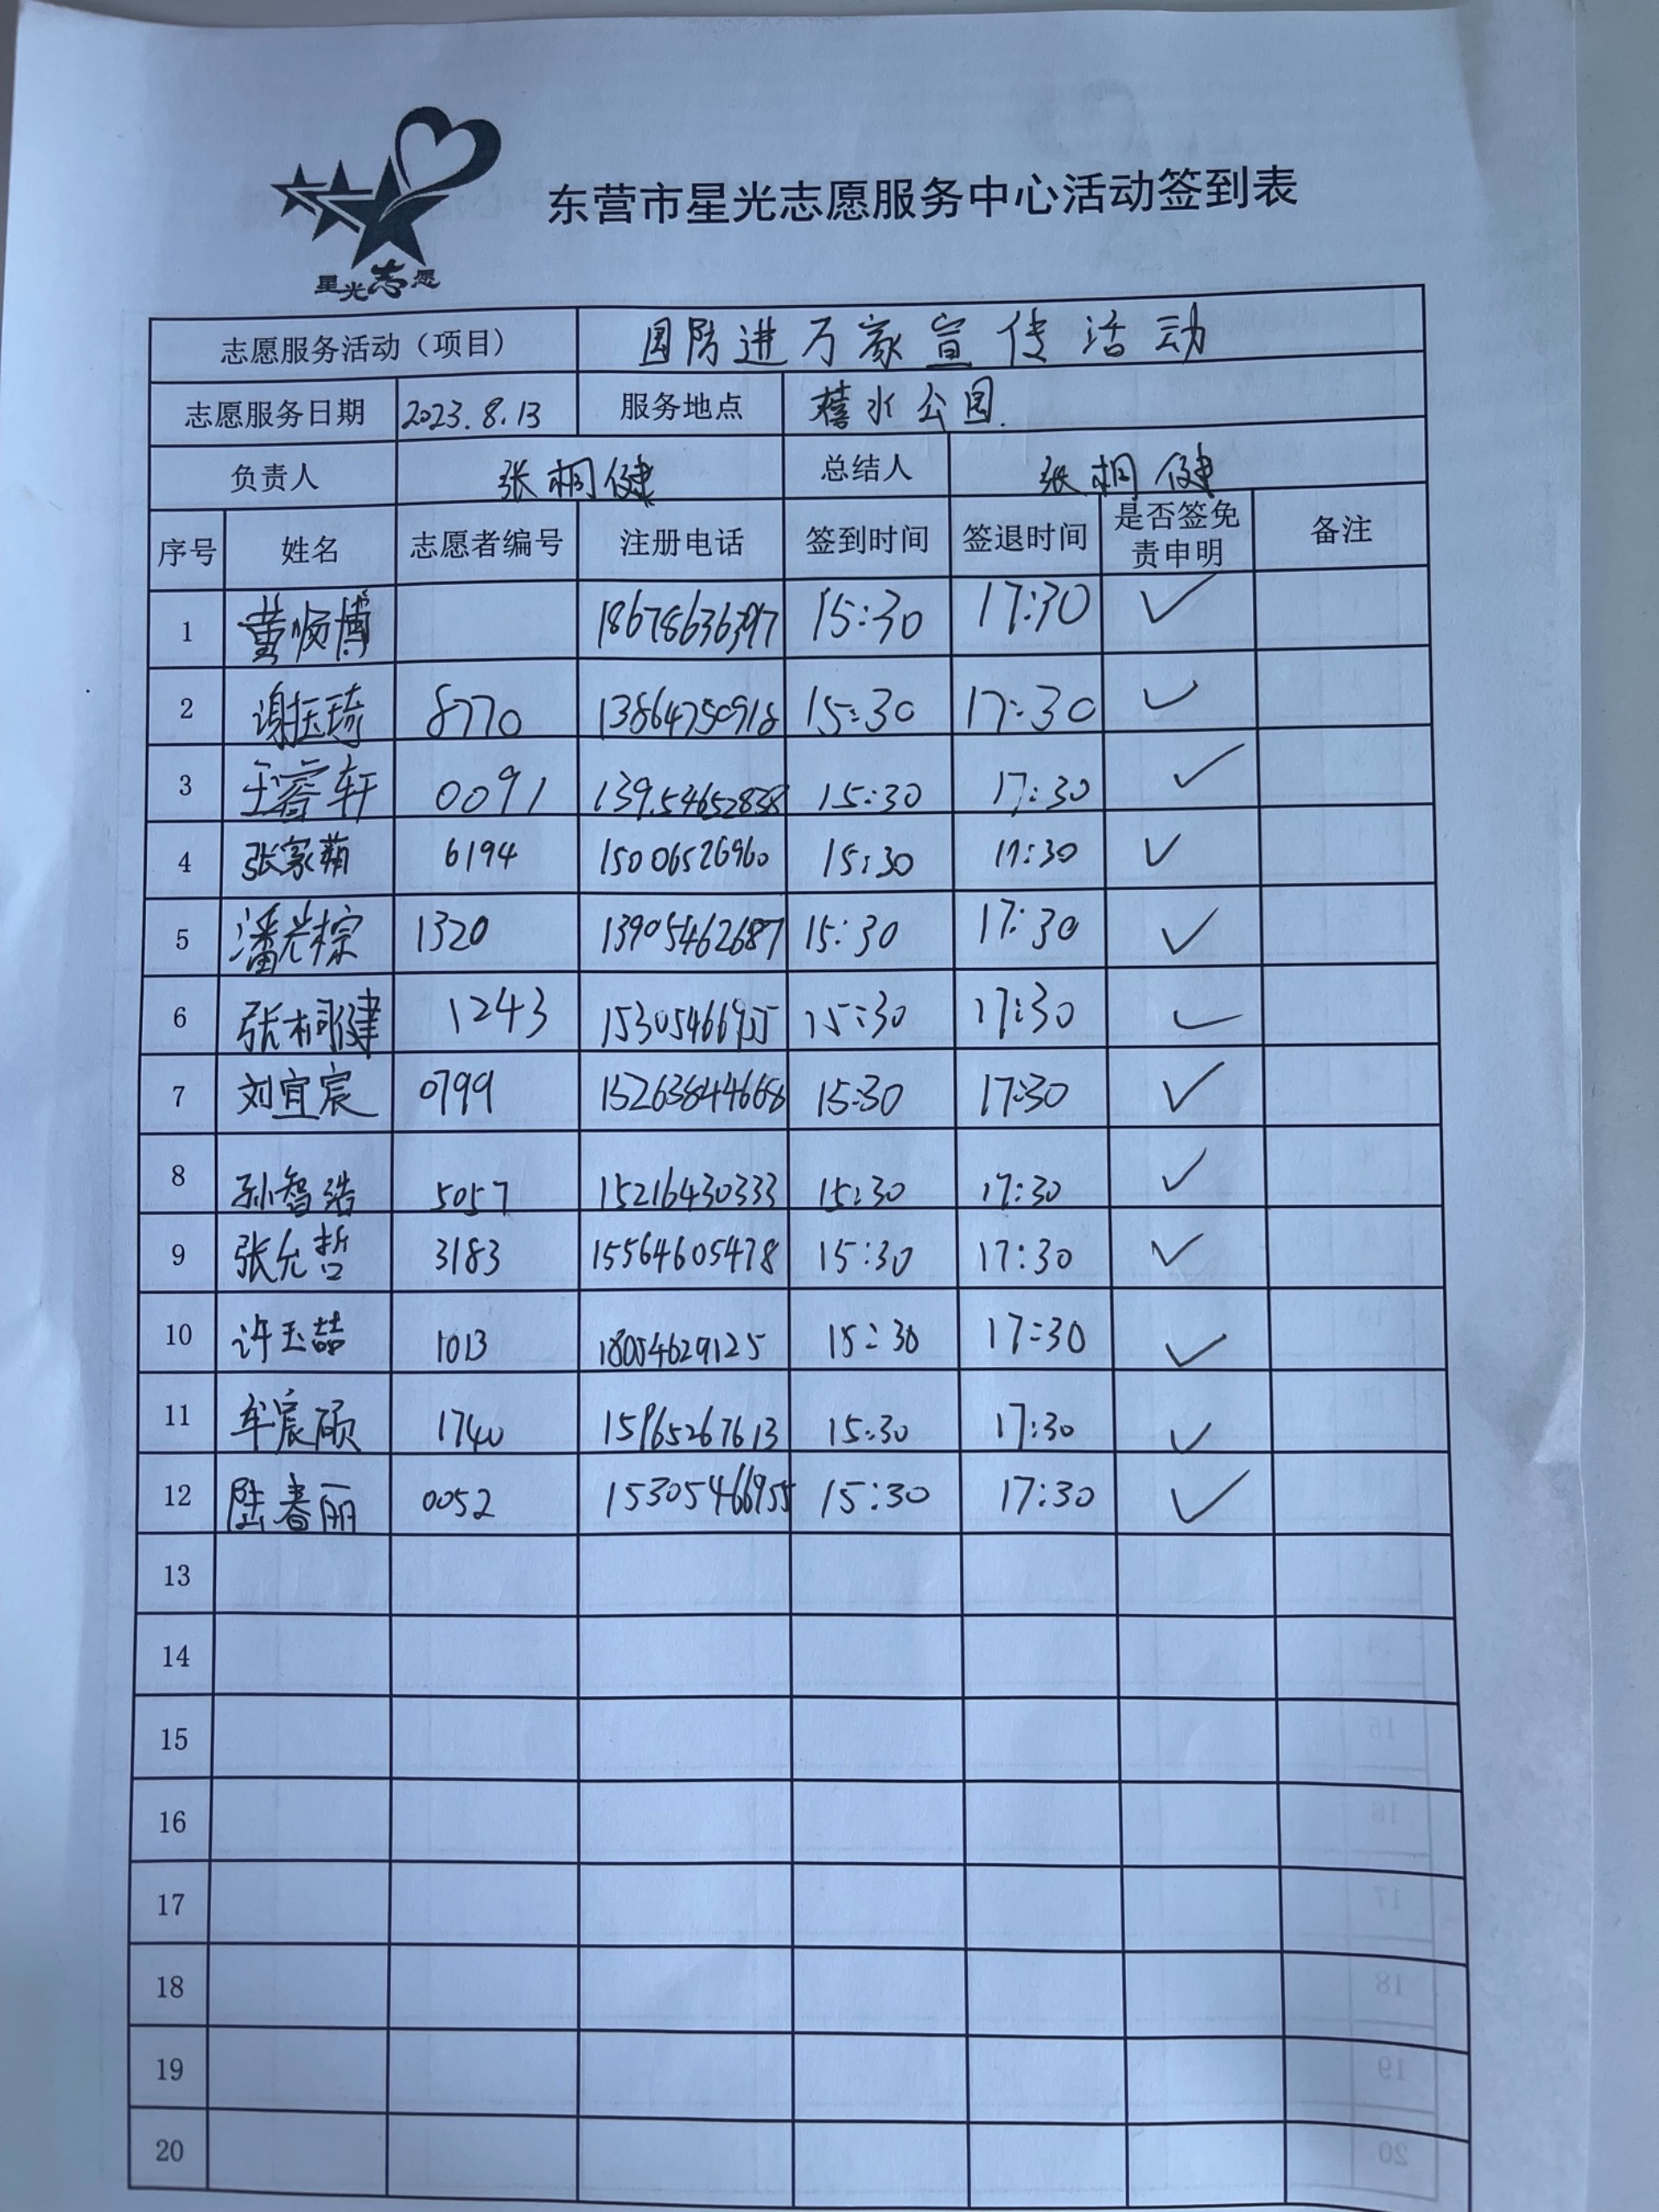 东营市星光志愿服务中心活动签到表
星光志愿
志愿服务活动（项目） 国防进万家宣传活动
志愿服务日期 2023.8.13 服务地点 水公园.
负责人 张桐健 总结人 张桐健
序号 姓名 志愿者编号 注册电话 签到时间 签退时间 是否签免责申明 备注
1 董顺博 15:30 17:30 ✓
2 谢玉琦 8770 13864750918 15:30 17:30 ✓
3 王睿轩 0091 13954652838 15:30 17:30 ✓
4 张家 6194 15006526960 15:30 17:30 ✓
5 潘光棕 1320 13905462687 15:30 17:30 ✓
6 张桐健 1243 15305466955 15:30 17:30 ✓
7 刘宜宸 0799 15263844668 15:30 17:30 ✓
8 孙智浩 5057 15216430333 15:30 17:30 ✓
9 张允哲 3183 15564605478 15:30 17:30 ✓
10 许玉喆 1013 18054629125 15:30 17:30 ✓
11 牟宸硕 1740 15965267613 15:30 17:30 ✓
12 陆春丽 0052 15305466955 15:30 17:30 ✓
13
14
15
16
17
18
19
20